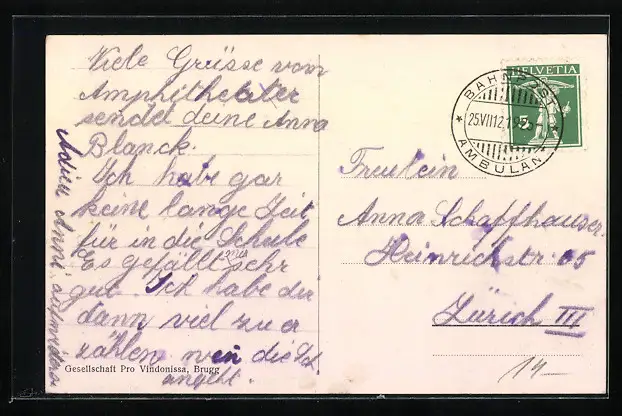 Viele Grüsse vom
Amphitheater
sendet deine Anna
Blanck.
Ich habe gar
keine lange Zeit
für in die Schule
Es gefällt mir sehr
gut. Ich habe dir
dann viel zu er
zählen wen die Sch
angeht.
Gesellschaft Pro Vindonissa, Brugg
Adieu Anni
HELVETIA
5
BAHNPOST
25.VII.12.
AMBULANT
Fräulein
Anna Schaffhauser
Heinrichstr. 05
Zürich III